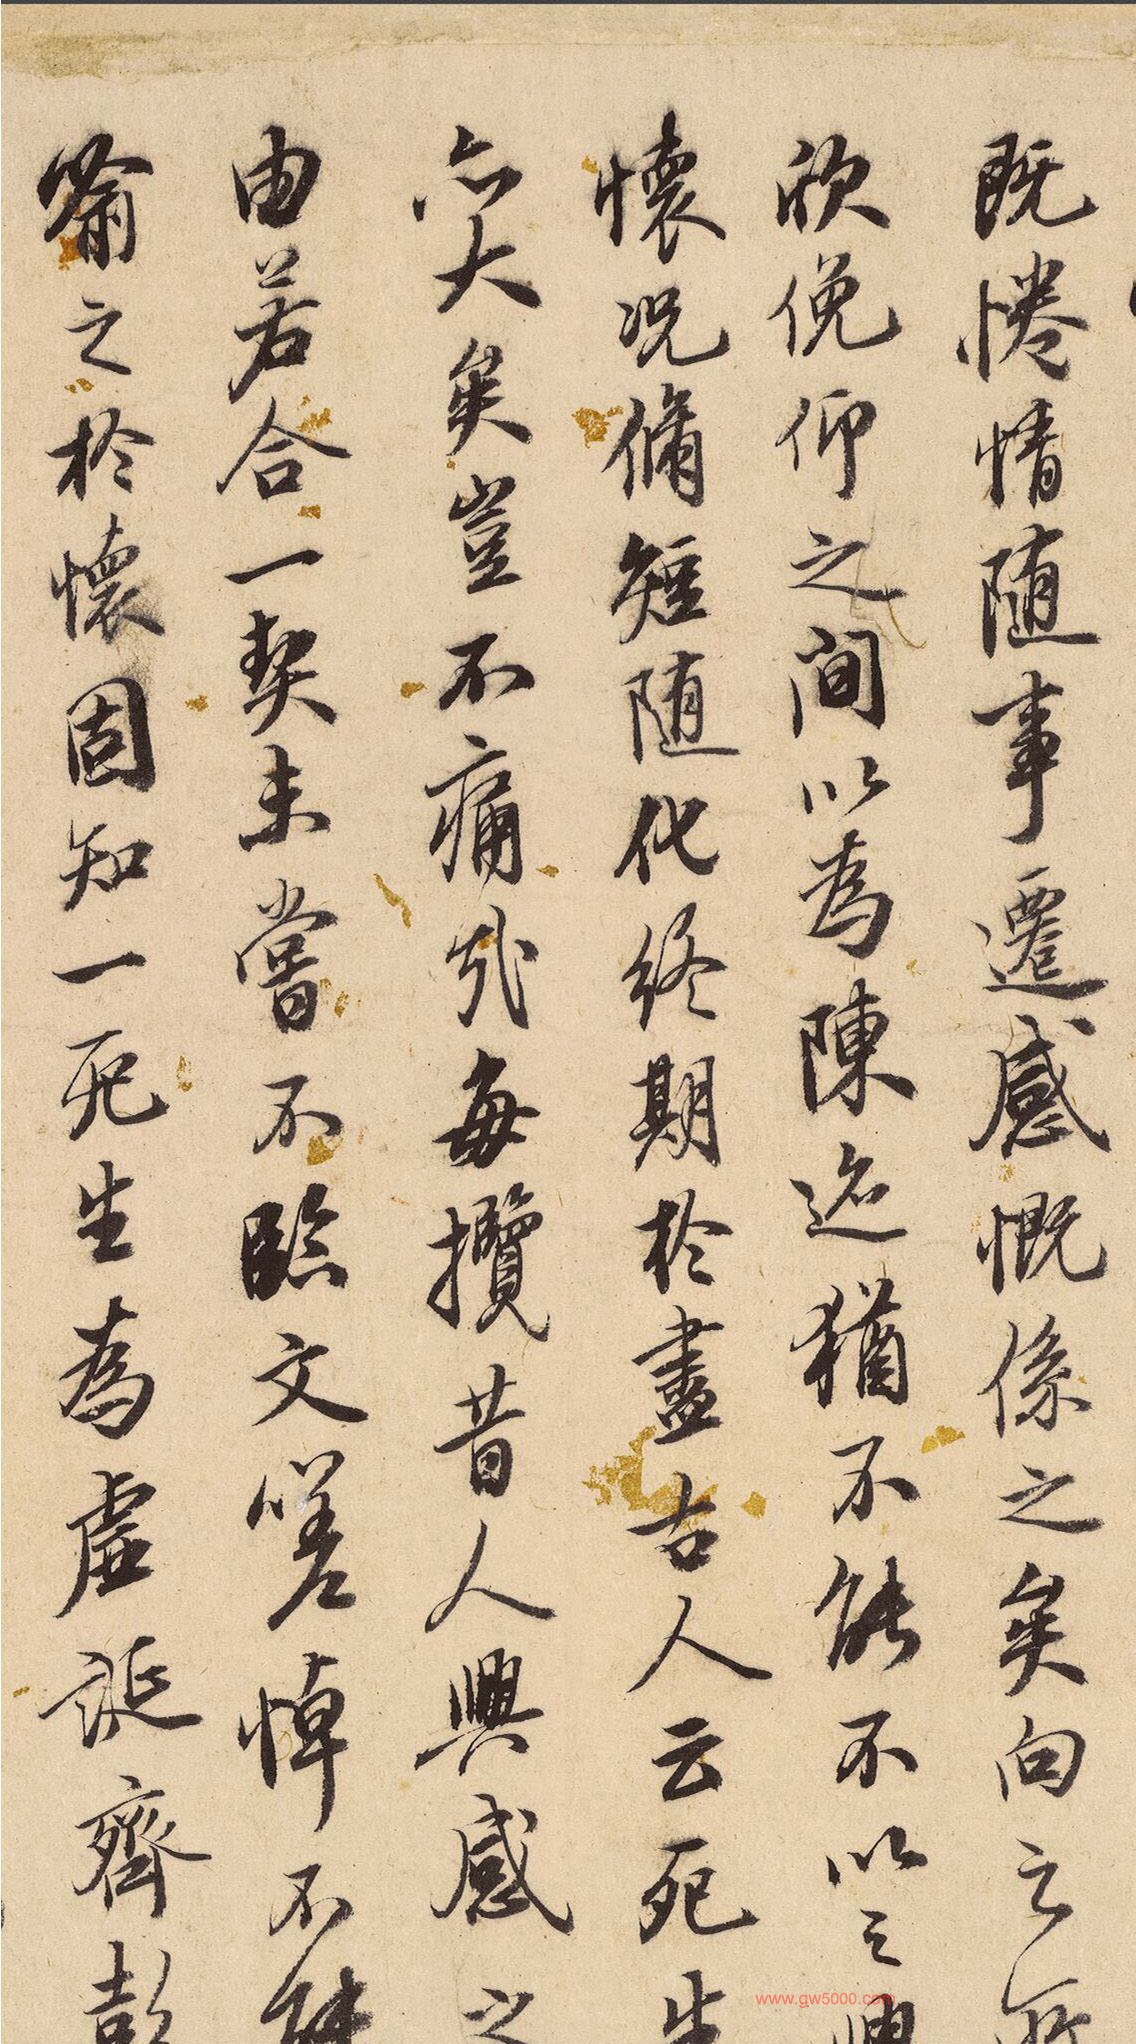 既惓情随事遷感慨係之矣向之所
欣俛仰之間以為陳迹猶不能不以之興
懷況脩短随化終期於盡古人云死生
亦大矣豈不痛哉每攬昔人興感之
由若合一契未嘗不臨文嗟悼不能
喻之於懷固知一死生為虛誕齊彭
www.gw5000.com